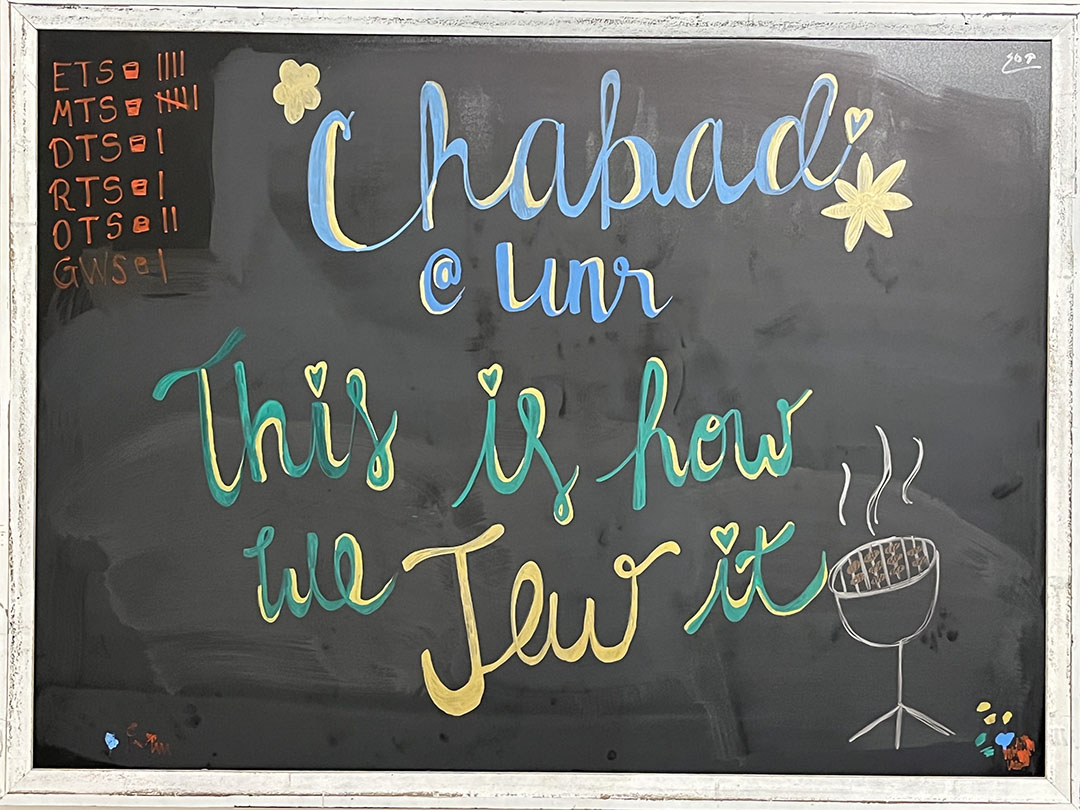 ETS ||||
MTS 卌 |
DTS |
RTS |
OTS ||
GWS |
Chabad
@ unr
This is how
we Jew it